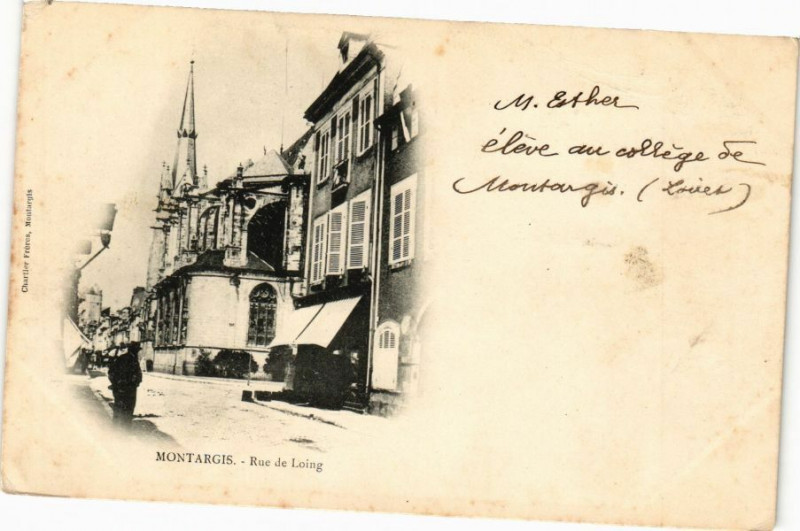 M. Esther
élève au collège de
Montargis. (Loiret)
Chartier Frères, Montargis
MONTARGIS. - Rue de Loing